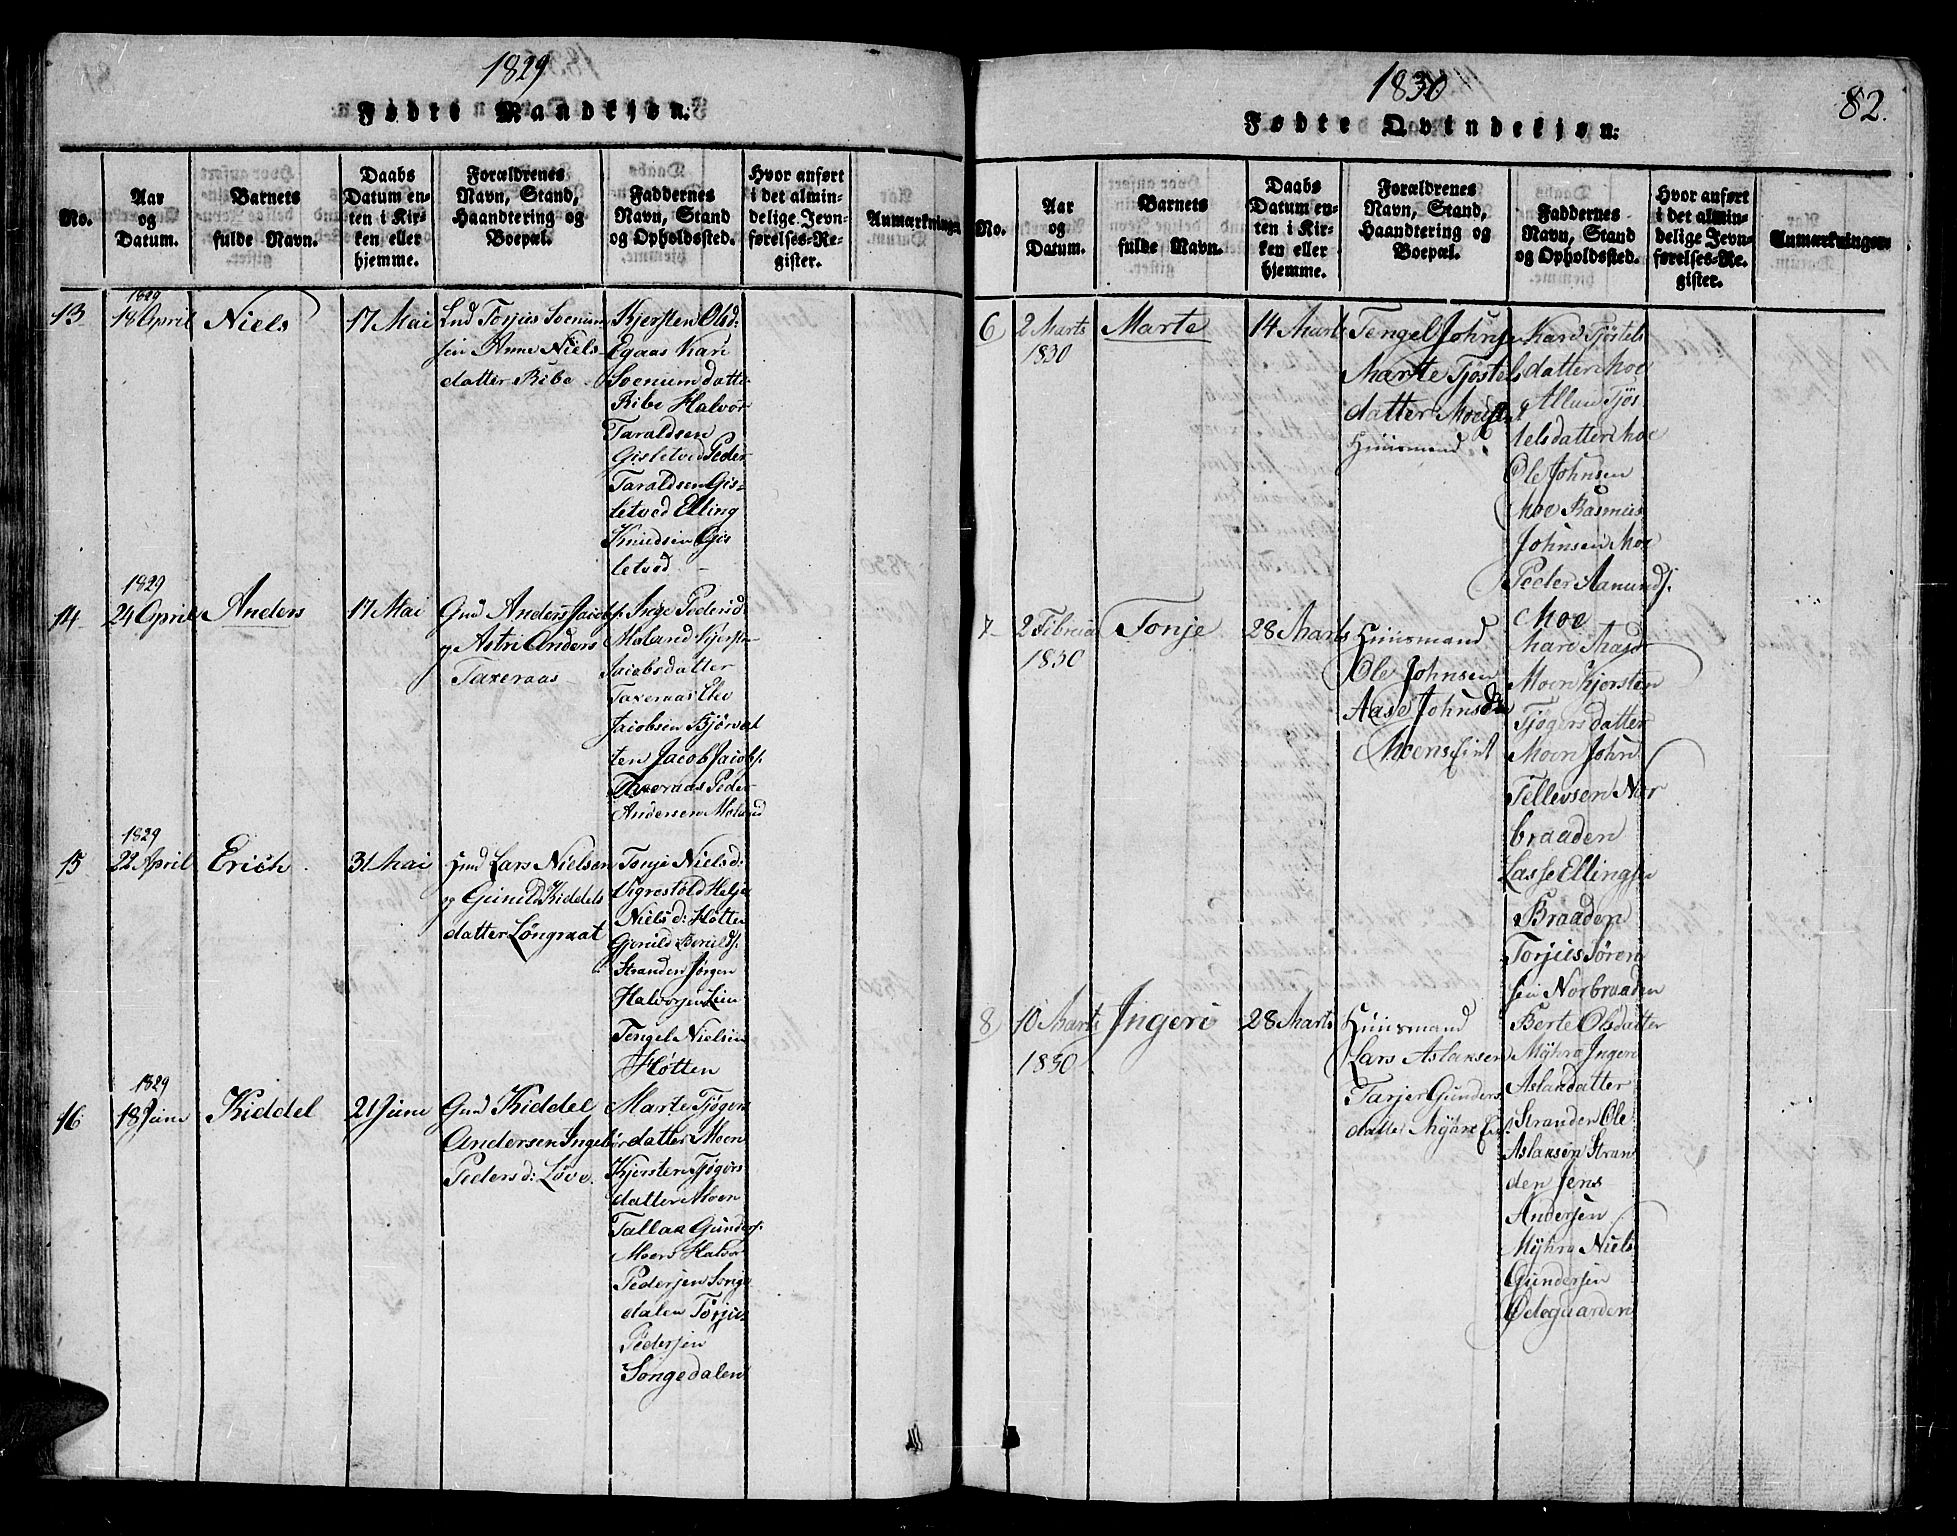 1829
Fødte Mandkjøn:
No.
Aar
og
Datum.
Barnets
fulde Navn.
Daabs
Datum en-
ten i Kir-
ken eller
hjemme.
Forældrenes
Navn, Stand,
Haandtering og
Boepæl.
Faddernes
Navn, Stand
og Opholdssted.
Hvor anført
i det almin-
delige Jevn-
førelses-Re-
gister.
Anmærkninger.
13
1829
14 April
Niels
17 Mai
Torjus Svenum
sen Anne Niels
datter Ribe
Kjersten Olsd:
Egaas Kari
Svenum datter
Ribe Halvor
Taraldsen
Gisletved Peder
Taraldsen Gis-
letved Elling
Knudsen Gis
letved
14
1829
24 April
Anders
17 Mai
Gmd Anders Jacobs.
og Astri Anders
Taxeraas
Inge Pedersd
Moland Kjersten
Jacobsdatter
Taxeraas
Jacobsen Bjørvat
ten Jacob Jacobs.
Taxeraas Peder
Andersen Moland
15
1829
22 April
Erich
31 Mai
Gmd Lars Nielsen
og Gunild Kiddels
datter Løngraat
Tonje Nielsd:
Vigrestold Helje
Niels d: Hotten
Gunild
Stranden Jørgen
Halvorsen Lien
Tengel Nielsen
Hotten
16
1829
18 Juni
Kiddel
21 Juni
Gmd Kiddel
Andersen Ingebor
Pedersd: Løve.
Marte Tjøgers
datter Moen
Kjersten Tjøgers
datter Moen
Tallax Gunders.
Moen Halvor
Pedersen Songe
dalen Torjus
Pedersen
Songedalen
1830
82.
Fødte Qvindekjøn:
No.
Aar
og
Datum.
Barnets
fulde Navn.
Daabs
Datum en-
ten i Kir-
ken eller
hjemme.
Forældrenes
Navn, Stand,
Haandtering og
Boepæl.
Faddernes
Navn, Stand
og Opholdssted.
Hvor anført
i det almin-
delige Jevn-
førelses-Re-
gister.
Anmærkninger.
6
2 Marts
1830
Marte
14 Marts
Tengel Johnsen
Marte Tjøstels
datter Moe
Huusmand
Kari Tjøstels
datter Moe
Tjøs
telsdatter Moe
Ole Johnsen
Moe Rasmus
Johnsen Moe
Peder Aamunds.
Moe
7
2 Februar
1830
Tonje
28 Marts
Huusmand
Ole Johnsen
Aase Johnsd
Moens Eint
Mari
Moen Kjersten
Tjøgersdatter
Moen John
Tellevsen Nor
braaden
Lasse Ellingsen
Braaden
Torjus Søren
sen Norbraaden
8
10 Marts
1830
Ingeri
28 Marts
Huusmand
Lars Aslaksen
Tarjer Gunders
datter
Berte Olsdatter
Myhra Ingeri
Aslaksdatter
Stranden Ole
Aslaksen Stran
den Jens
Andersen
Myhra Niels
Gundersen
Ødegaarden